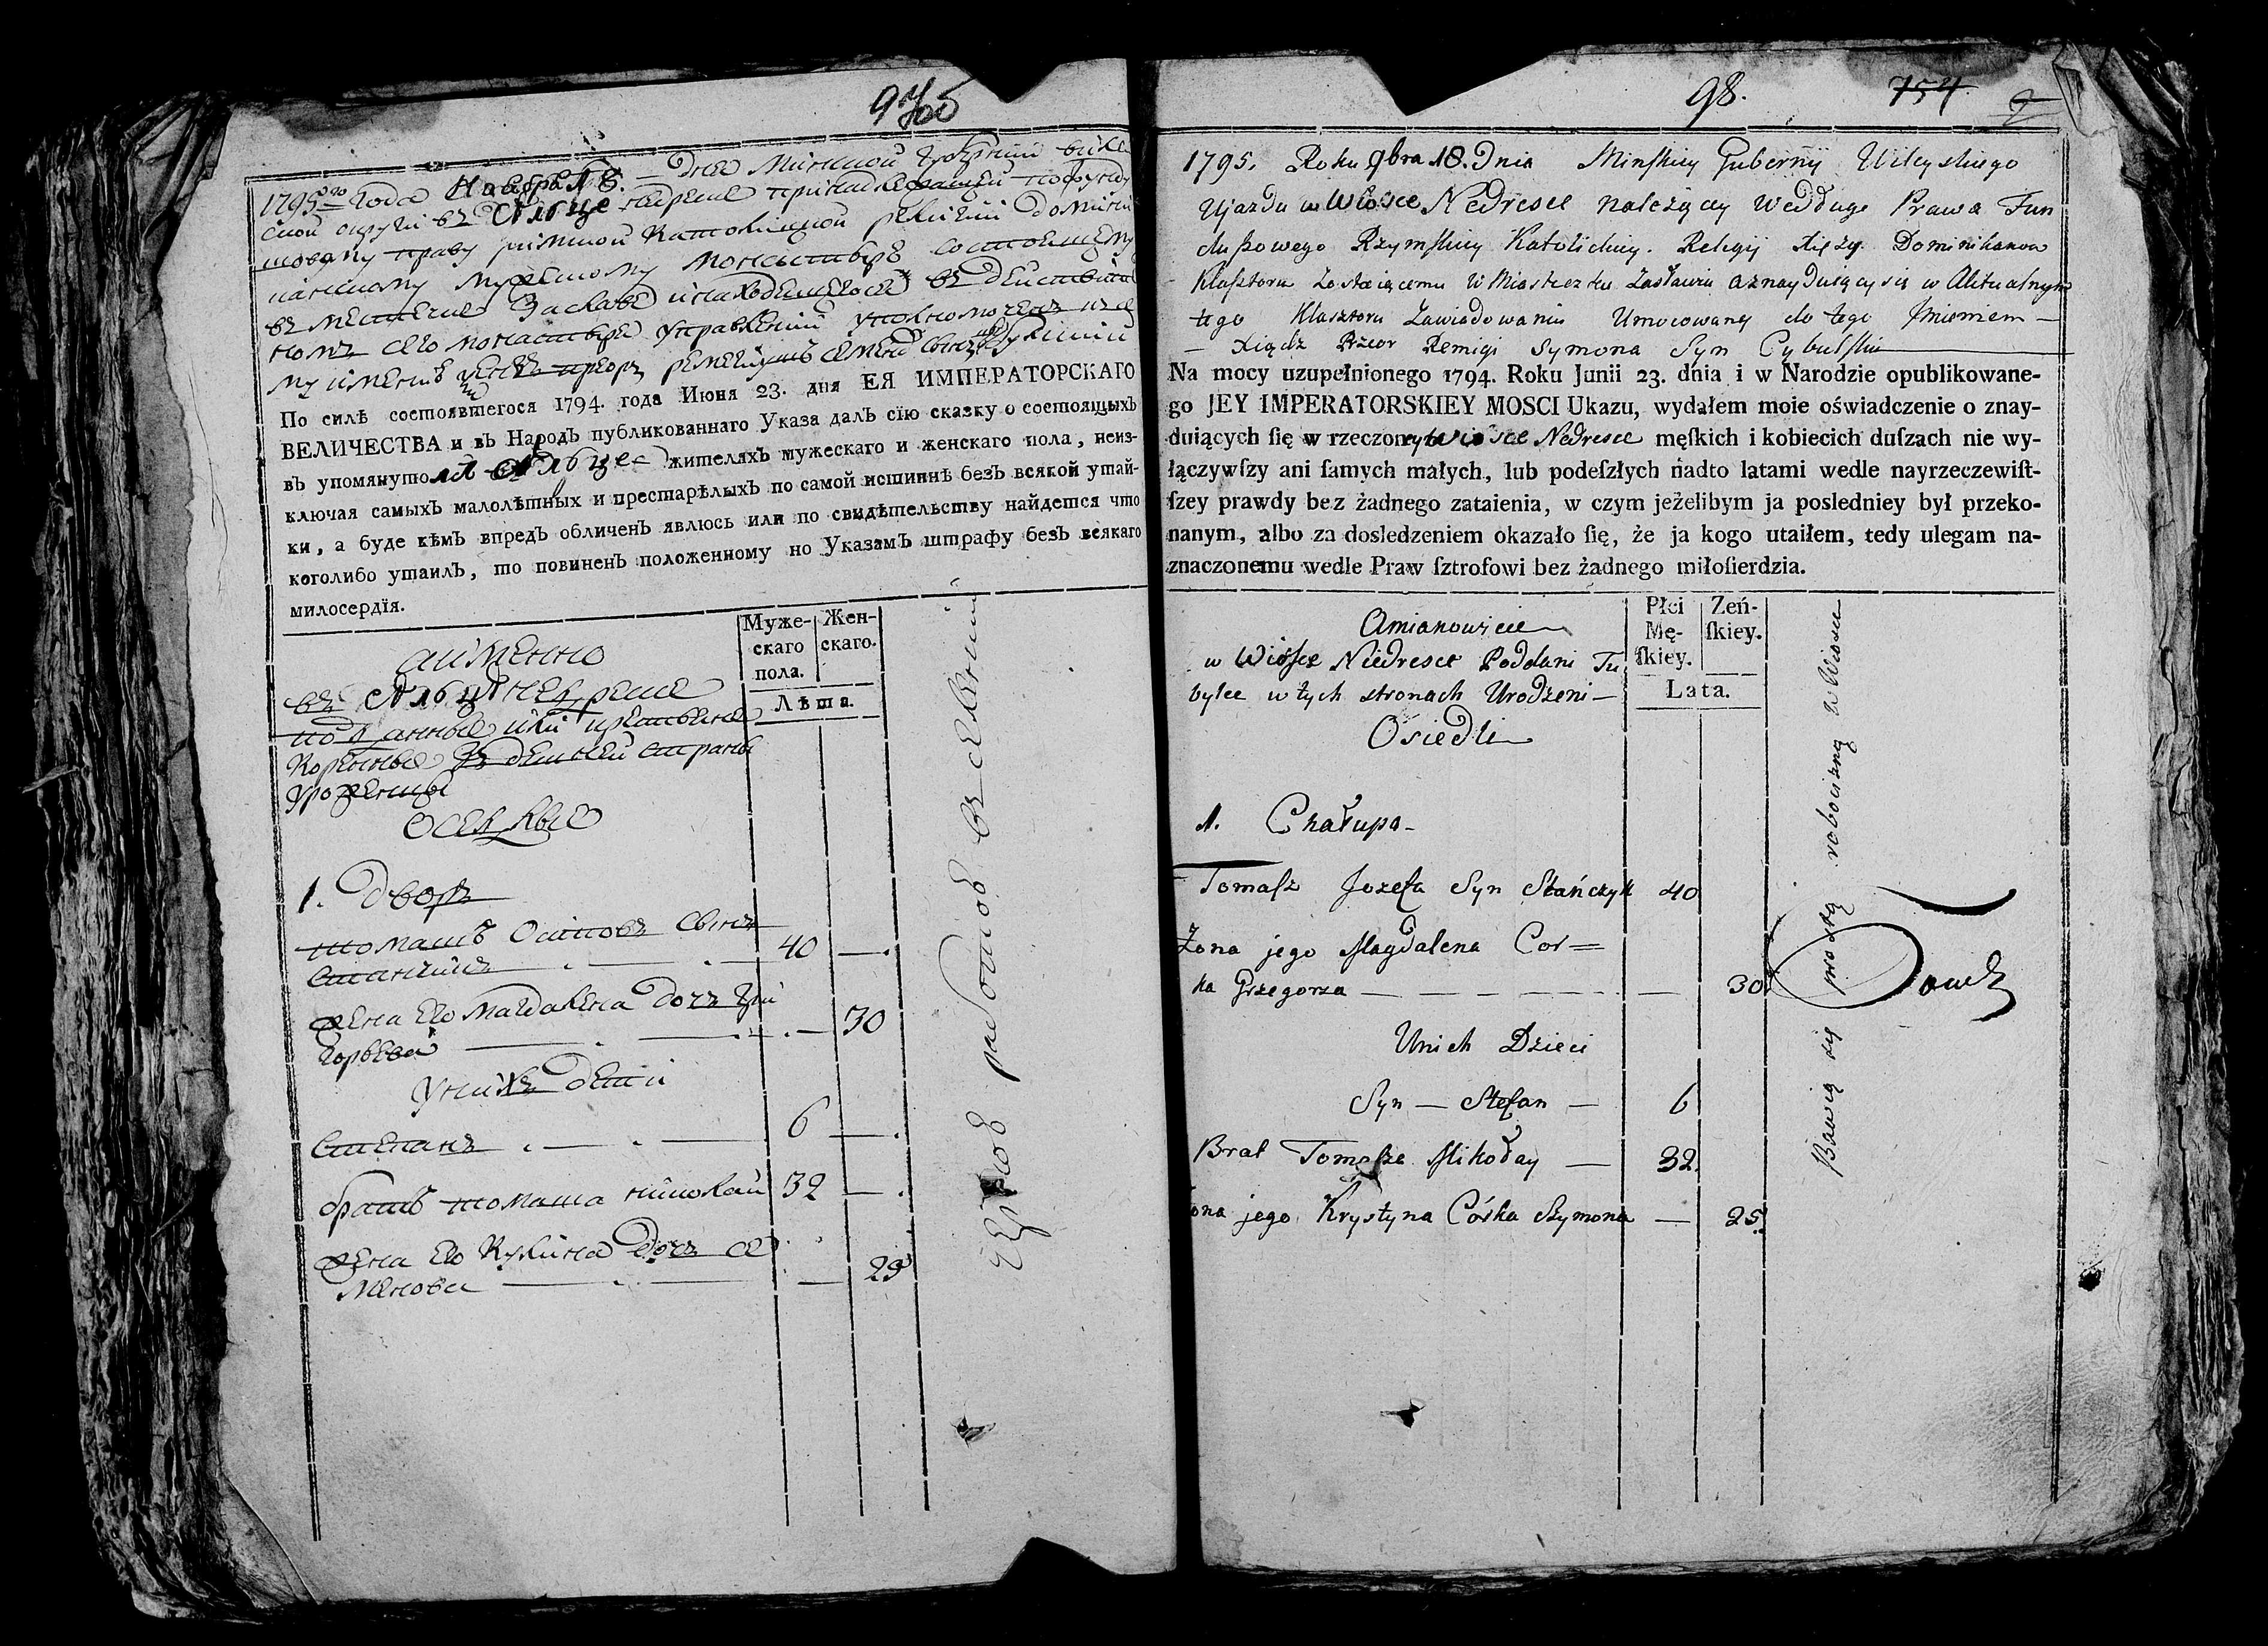 1795го года Ноября 18. Дня Минской Губернии виле
ской округи въ сельце недреске принадлежащей по фунду
шовому праву римской католицкой религии домини
канскому мужескому монастырю состоящему
въ местечке Заславе и находящегося в действитель
номъ сего монастыря управлении уполномоченъ к се
му имению ксендз приоръ ремегиушъ семена сынъ Цыбулский
По силѣ состоявшегося 1794. года Июня 23. дня ЕЯ ИМПЕРАТОРСКАГО
ВЕЛИЧЕСТВА и въ Народъ публикованнаго Указа далъ сїю сказку о состоящыхъ
въ упомянуто сельце жителяхъ мужескаго и женскаго пола, неиз-
ключая самыхъ малолѣтных и престарѣлыхъ по самой истиннѣ безъ всякой утай-
ки, а буде кѣмъ впредъ обличенъ явлюсь или по свидѣтельству найдется что
коголибо утаилъ, то повиненъ положенному по Указамъ штрафу безъ всякаго
милосердїя.
Муже-
скаго
пола.
Жен-
скаго.
Лѣта.
а именно
въ сельце недреске
подданные или крестьяне
коренные здешней страны
уроженцы
оселые
1. Дворъ
томашъ Осиповъ сынъ
станчикъ 40
жена его магдалена дочь гри
горьева 30
у нихъ дети
степанъ 6
братъ томаша николай 32
жена его дочь се
менова 25
работою в селении
98. 754
1795. Roku 9bra 18. Dnia Minskiey Gubernij Wileyskiego
Ujazdu w Wiosce Niedresce należącey według Prawa Fun
duszowego Rzymskiey Katolickiey. Religij Xięży. Dominikanow
Klasztoru Zostaiącemu w Miasteczku Zasławiu a znayduiącysię w Aktualnym
tego Klasztoru Zawiadowaniu Umocowany do tego Jmieniem —
— Xiądz Przeor Remigi Symona Syn Cybulski
Na mocy uzupełnionego 1794. Roku Junii 23. dnia i w Narodzie opublikowane-
go JEY IMPERATORSKIEY MOSCI Ukazu, wydałem moie oświadczenie o znay-
duiących ſię w rzeczoney Wiosce Niedresce męſkich i kobiecich duſzach nie wy-
łączywſzy ani ſamych małych, lub podeſzłych nadto latami wedle nayrzeczewiſt-
ſzey prawdy bez żadnego zataienia, w czym jeżelibym ja posledniey był przeko-
nanym, albo za dosledzeniem okazało ſię, że ja kogo utaiłem, tedy ulegam na-
znaczonemu wedle Praw ſztrofowi bez żadnego miłoſierdzia.
Płci
Mę-
ſkiey.
Zeń-
ſkiey.
Lata.
Amianowicie
w Wiosce Niedresce Poddani Tu
bylce w tych stronach Urodzeni —
Osiedli
1. Chałupa —
Tomasz Jozefa Syn Stańczyk 40
Żona jego Magdalena Cor=
ka Grzegorza — — — — 30
Unich Dzieci
Syn — Stefan — 6
Brat Tomasza Mikołay — 32
ona jego Krystyna Córka Szymona — 25
Bawią się prostą robocizną w Wiosce